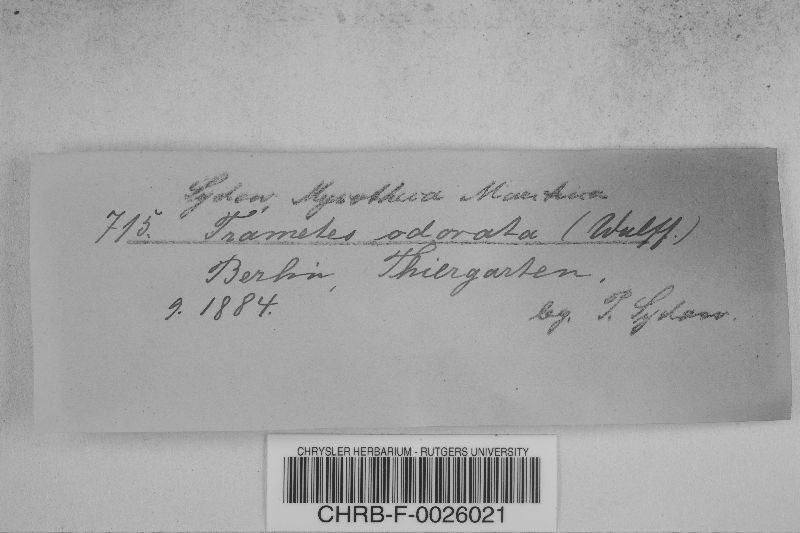 Sydow, Mycotheca Marchica
715. Trametes odorata (Wulff.)
Berlin, Thiergarten.
9. 1884. leg. P. Sydow.
CHRYSLER HERBARIUM - RUTGERS UNIVERSITY
CHRB-F-0026021